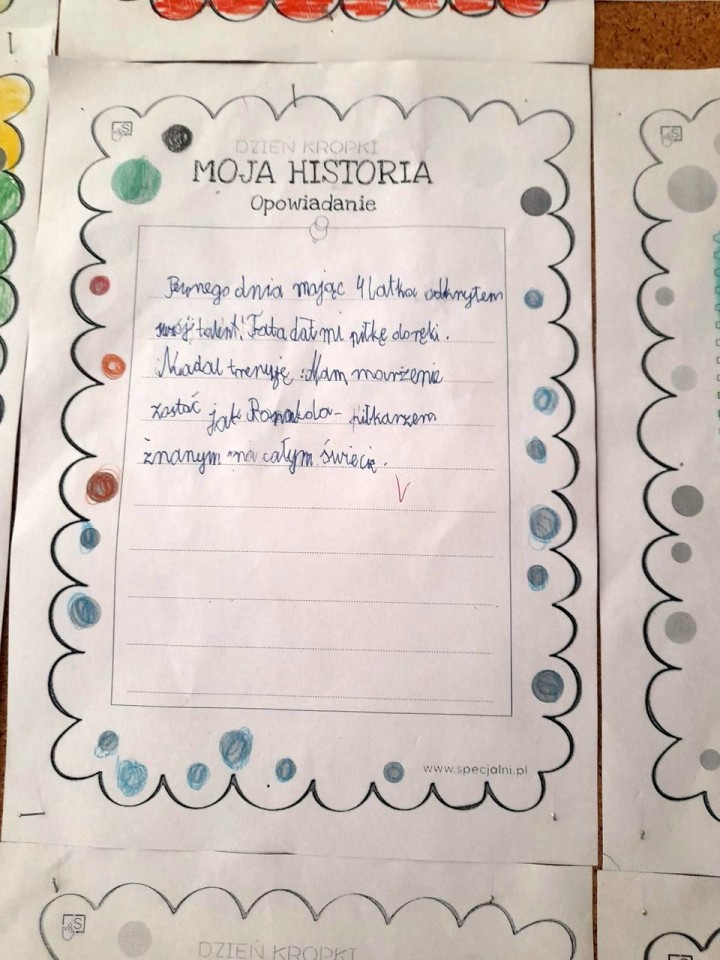 DZIEŃ KROPKI
MOJA HISTORIA
Opowiadanie
Pewnego dnia mając 4 latka odkryłem
swój talent. Tata dał mi piłkę do ręki.
Nadal trenuję. Mam marzenie
zostać jak Ronaldo - piłkarzem
znanym na całym świecię.
www.specjalni.pl
DZIEŃ KROPKI